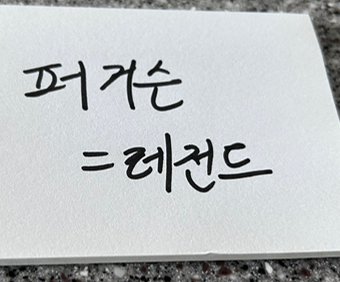 퍼거슨
=레전드